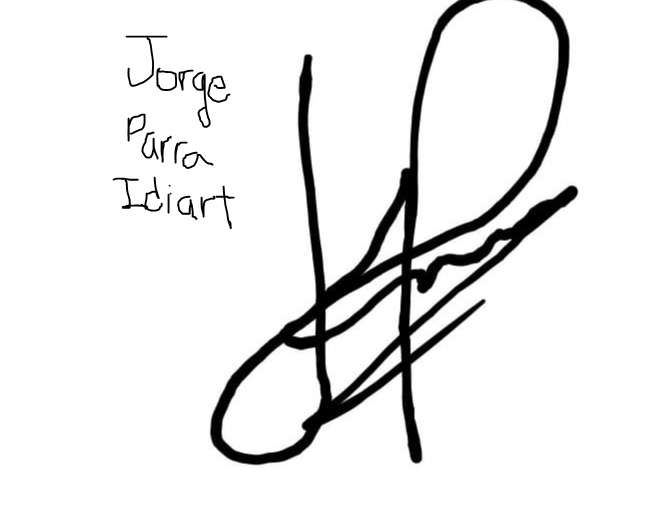 Jorge
Parra
Idiart